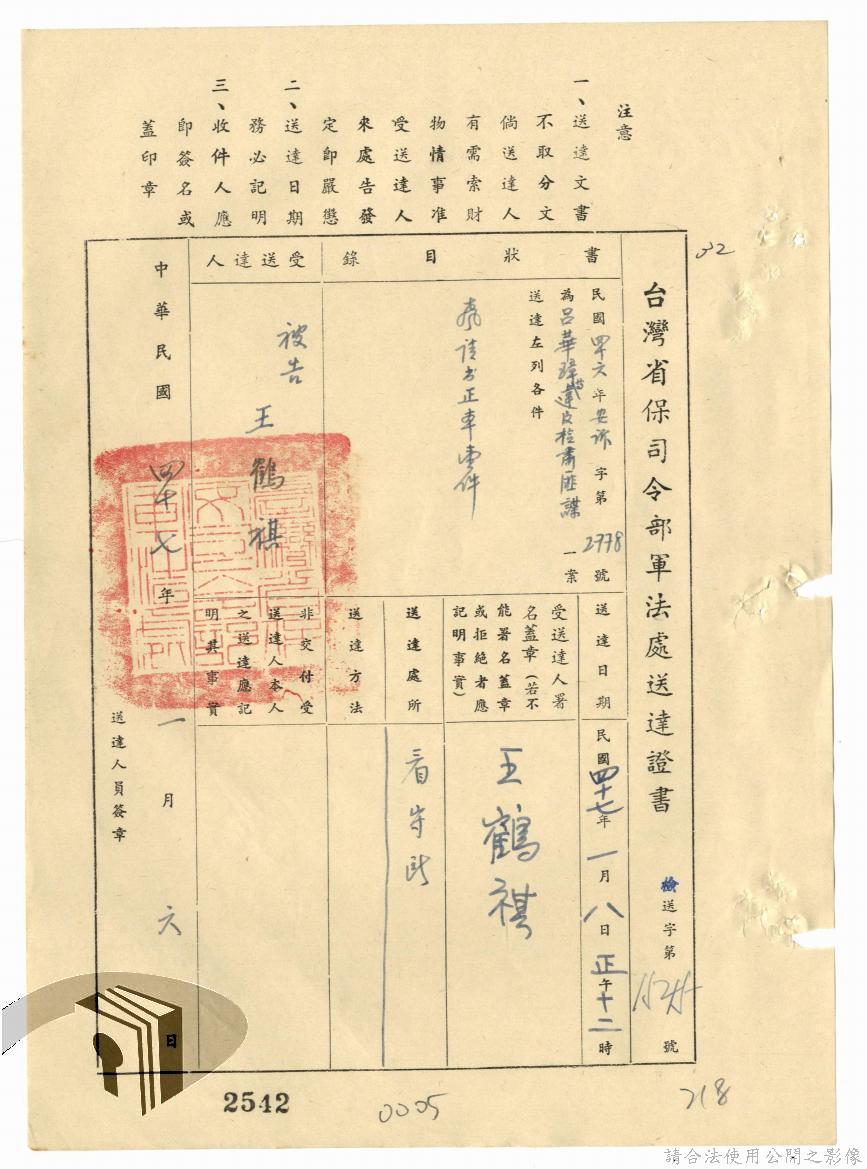 注意
一、送達文書
不取分文
倘送達人
有需索財
物情事准
受送達人
來處告發
定即嚴懲
二、送達日期
務必記明
三、收件人應
即簽名或
蓋印章
台灣省保司令部軍法處送達證書
檢送字第
號
書狀目錄
民國四十六年安訴字第2778號
為呂華璋等違反檢肅匪諜一案
送達左列各件
受送達人
被告 王鶴祺
送達日期
民國四十七年一月八日正午十二時
受送達人署
名蓋章(若不
能署名蓋章
或拒絶者應
記明事實)
王鶴祺
送達處所
看守所
送達方法
非交付受
送達人本人
之送達應記
明其事實
中華民國四十七年一月六日
送達人員簽章
32
2542
0005
218
請合法使用公開之影像